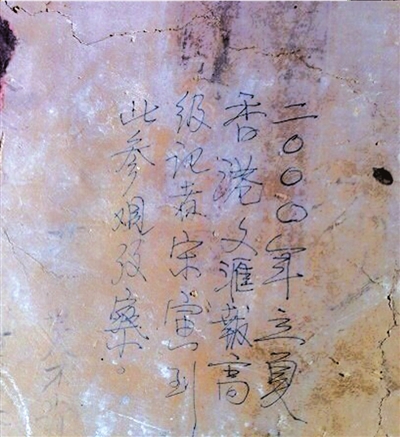 二〇〇〇年立夏
香港文滙報高
级记者宋到
此参观攷察。